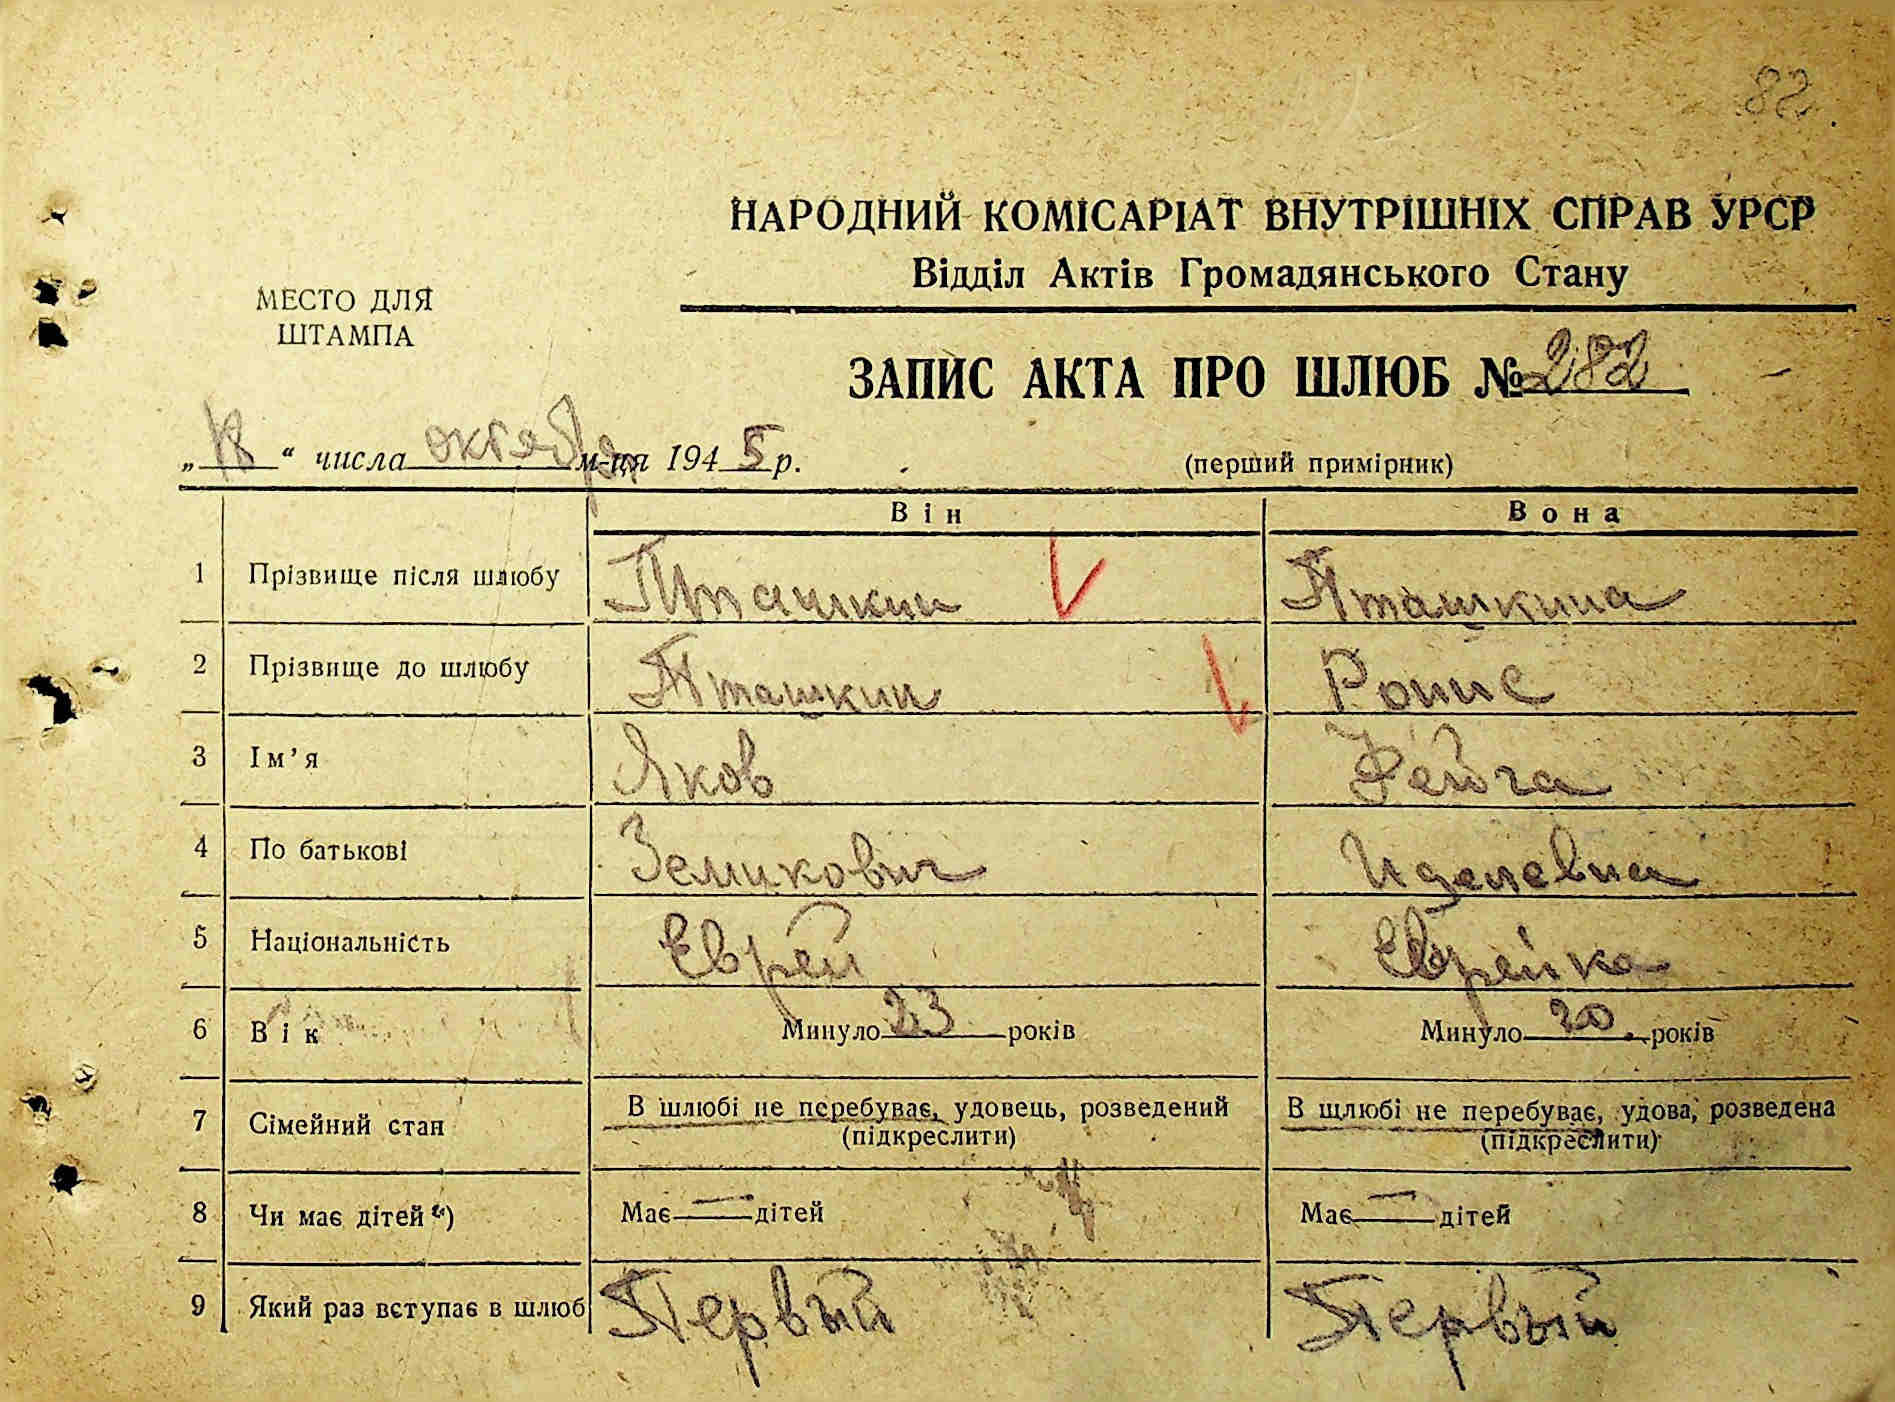 82
НАРОДНИЙ КОМІСАРІАТ ВНУТРІШНІХ СПРАВ УРСР
Відділ Актів Громадянського Стану
МЕСТО ДЛЯ
ШТАМПА
ЗАПИС АКТА ПРО ШЛЮБ № 282
„18“ числа октября м-ця 1945 р.
(перший примірник)
Він Вона
1 Прізвище після шлюбу Пташкин Пташкина
2 Прізвище до шлюбу Пташкин
3 Ім’я Яков Фейга
4 По батькові Земикович Иделевна
5 Національність Еврей Еврейка
6 Вік Минуло 23 років Минуло 20 років
7 Сімейний стан В шлюбі не перебуває, удовець, розведений В шлюбі не перебуває, удова, розведена
(підкреслити) (підкреслити)
8 Чи має дітей*) Має — дітей Має — дітей
9 Який раз вступає в шлюб Первый Первый